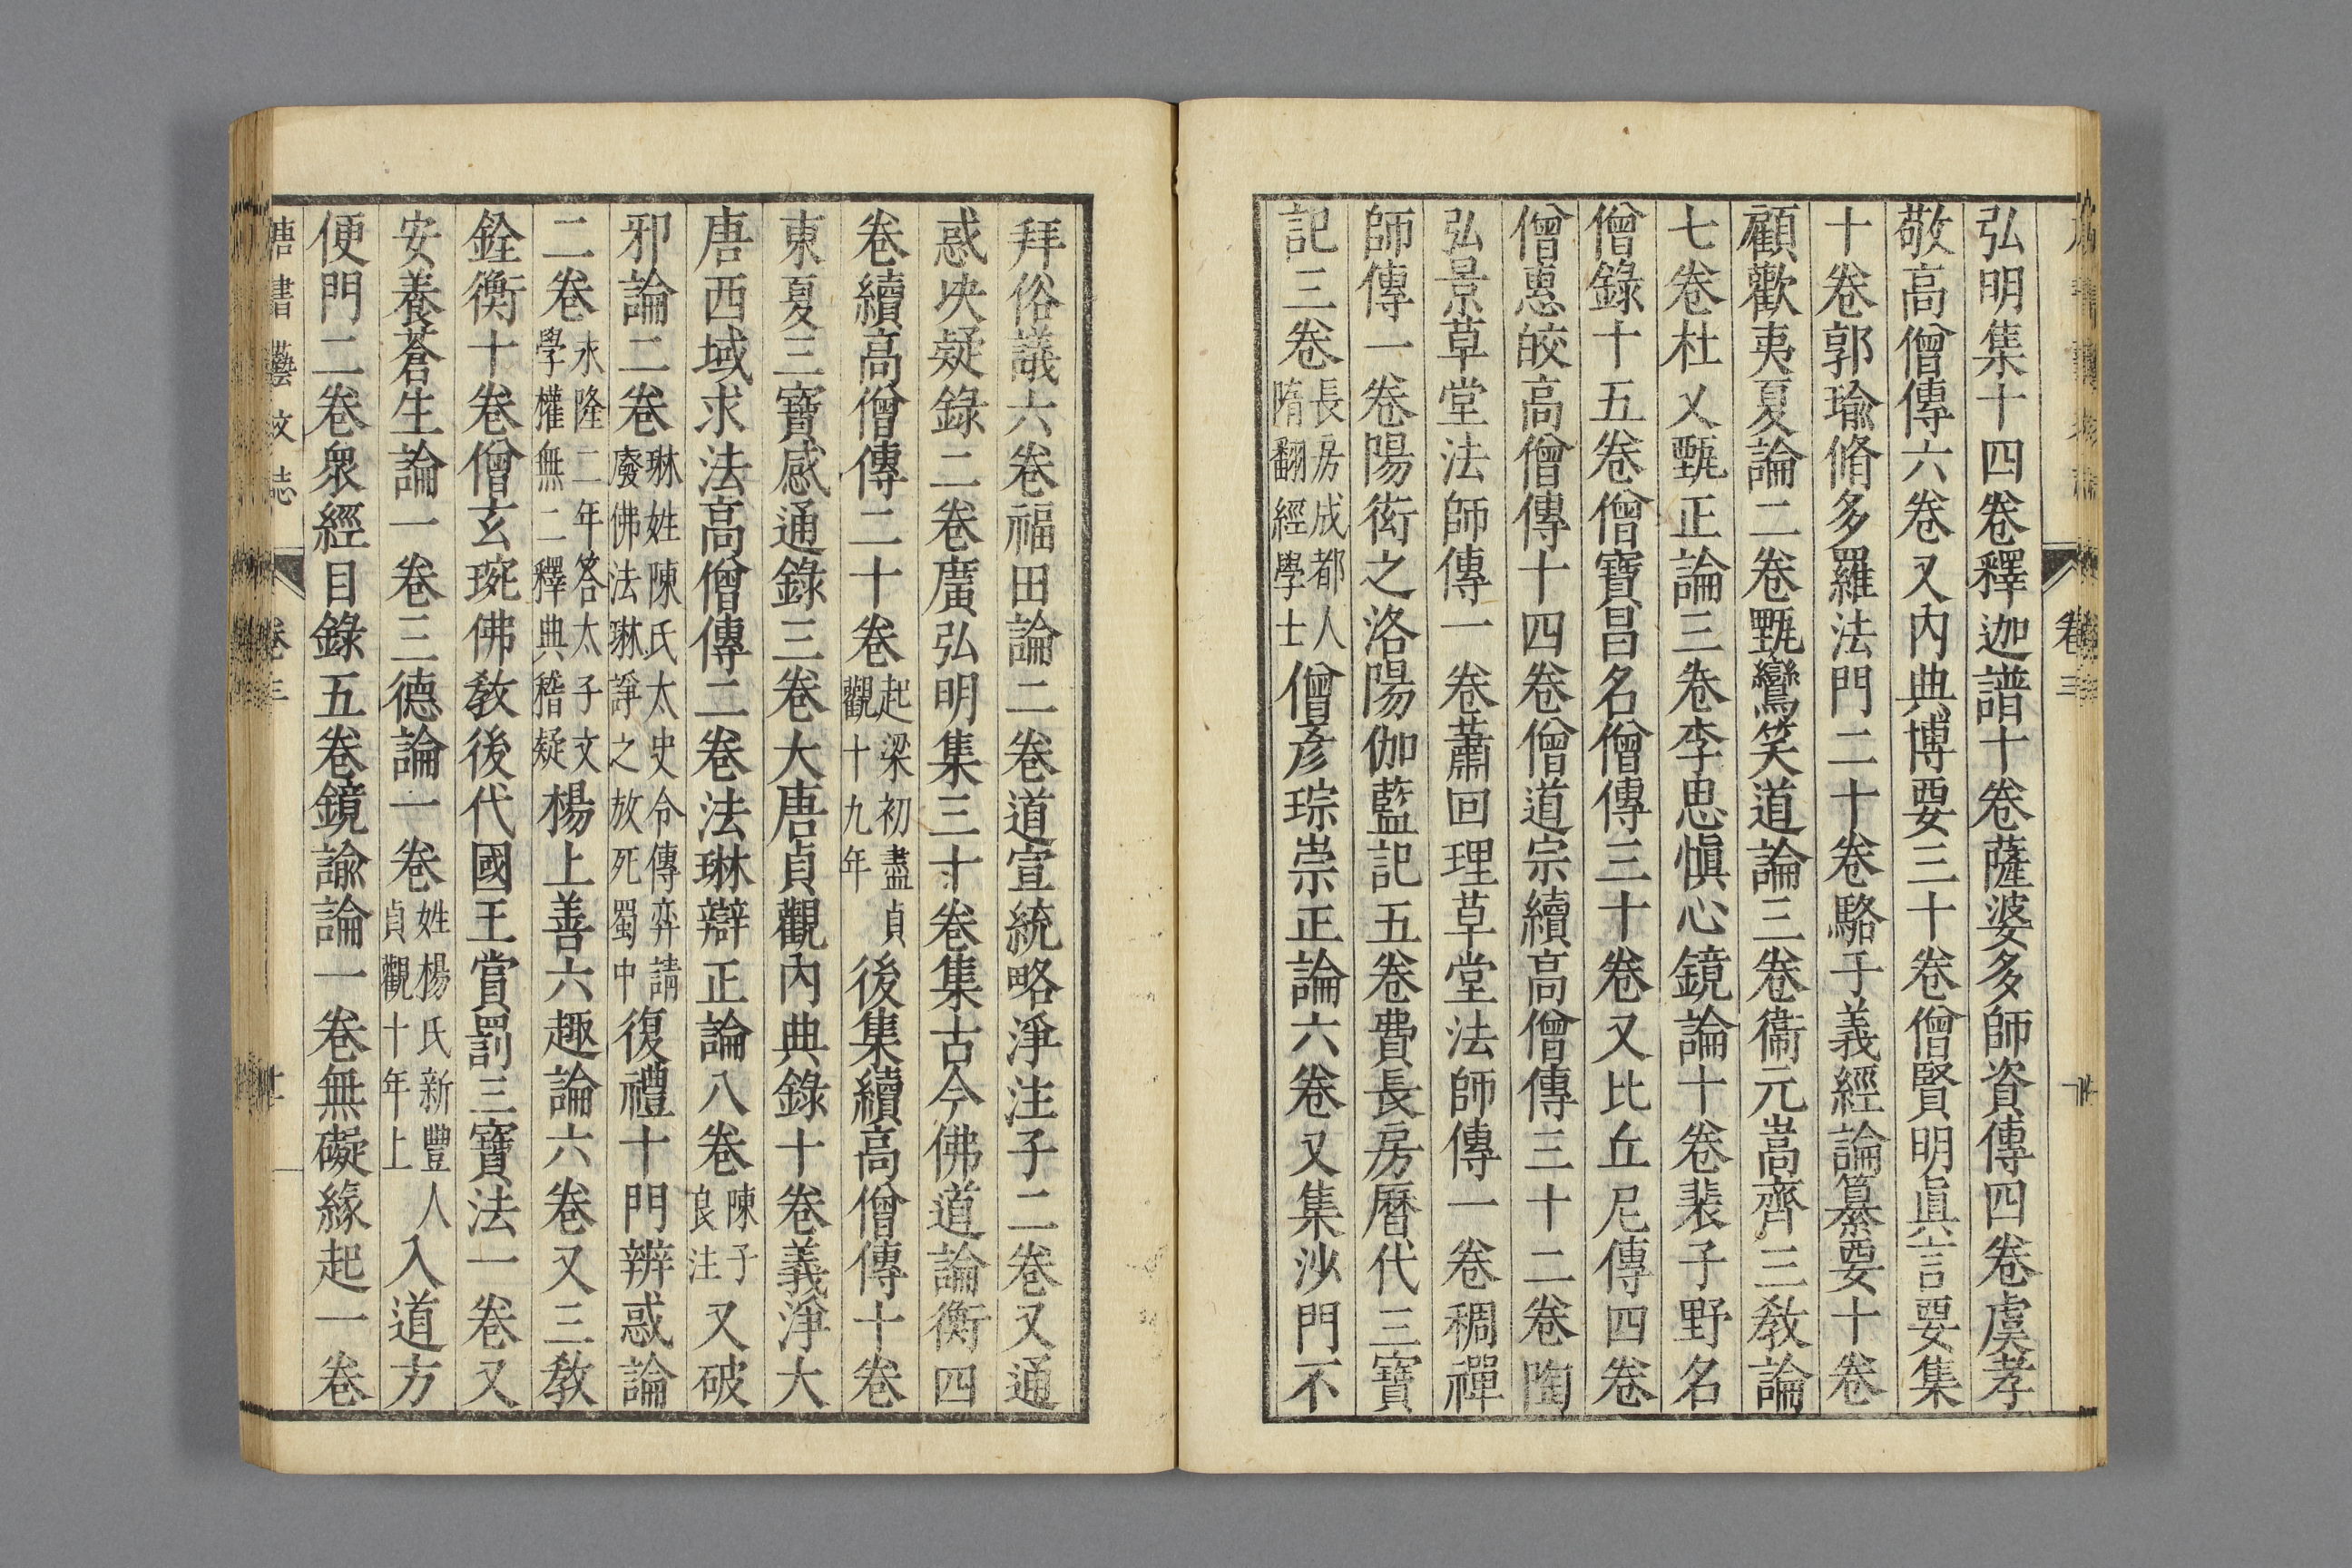 弘明集十四卷釋迦譜十卷薩婆多師資傳四卷虞孝
敬高僧傳六卷又內典博要三十卷僧賢明眞言要集
十卷郭瑜脩多羅法門二十卷駱子義經論纂要十卷
顧歡夷夏論二卷甄鸞笑道論三卷衞元嵩齊三敎論
七卷杜乂甄正論三卷李思愼心鏡論十卷裴子野名
僧錄十五卷僧寶昌名僧傳三十卷又比丘尼傳四卷
僧惠皎高僧傳十四卷僧道宗續高僧傳三十二卷陶
弘景草堂法師傳一卷蕭回理草堂法師傳一卷稠禪
師傳一卷陽衒之洛陽伽藍記五卷費長房曆代三寶
記三卷長房成都人隋翻經學士僧彥琮崇正論六卷又集沙門不
拜俗議六卷福田論二卷道宣統略淨注子二卷又通
惑决疑錄二卷廣弘明集三十卷集古今佛道論衡四
卷續高僧傳二十卷起梁初盡貞觀十九年後集續高僧傳十卷
東夏三寶感通錄三卷大唐貞觀內典錄十卷義淨大
唐西域求法高僧傳二卷法琳辯正論八卷陳子良注又破
邪論二卷琳姓陳氏太史令傅弈請廢佛法琳諍之放死蜀中復禮十門辨惑論
二卷永隆二年答太子文學權無二釋典稽疑楊上善六趣論六卷又三敎
銓衡十卷僧玄琬佛敎後代國王賞罰三寶法一卷又
安養蒼生論一卷三德論一卷姓楊氏新豐人貞觀十年上入道方
便門二卷衆經目錄五卷鏡諭論一卷無礙緣起一卷
唐書藝文志 卷三